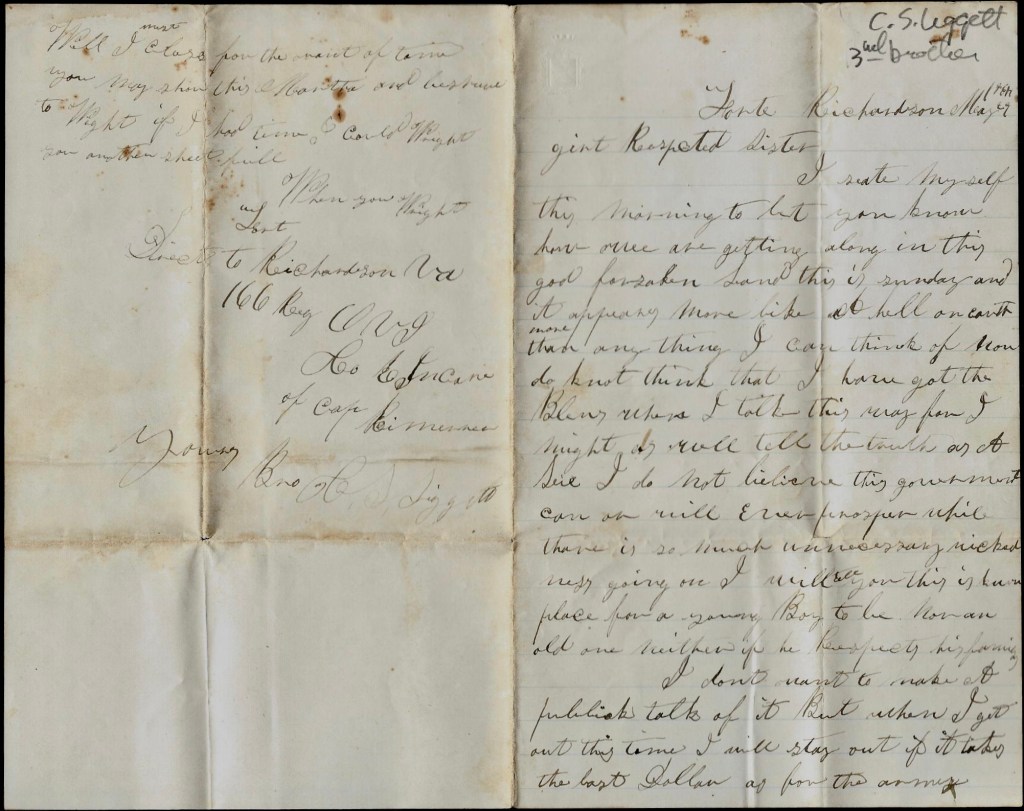 Well I must close for the want of time
you may show this Martha and her
to Wright if I had time I could Wright
you another sheet full
When you Wright
Fort
Direct to Richardson Va
166 Reg O V I
Co E In care
of Cap
Yours
Bro C. S. Liggett
C. S. Liggett
3rd brother
Forte Richardson May
Respected Sister
I seate myself
this morning to let you know
how wee are getting along in this
god forsaken land this is sunday and
it appears more like A hell on earth
more
than any thing I can think of You
do knot think that I have got the
Blews when I talk this way for I
might as well tell the truth as A
I do not believe this goverment
can or will Ever prosper while
thare is so much unnecessary wicked
ness going on I will tell you this is
place for a young Boy to be Nor an
old one neither if he Respects his
I dont want to make A
publick talk of it But when I get
out this time I will stay out if it takes
the last Dollar as for the armey